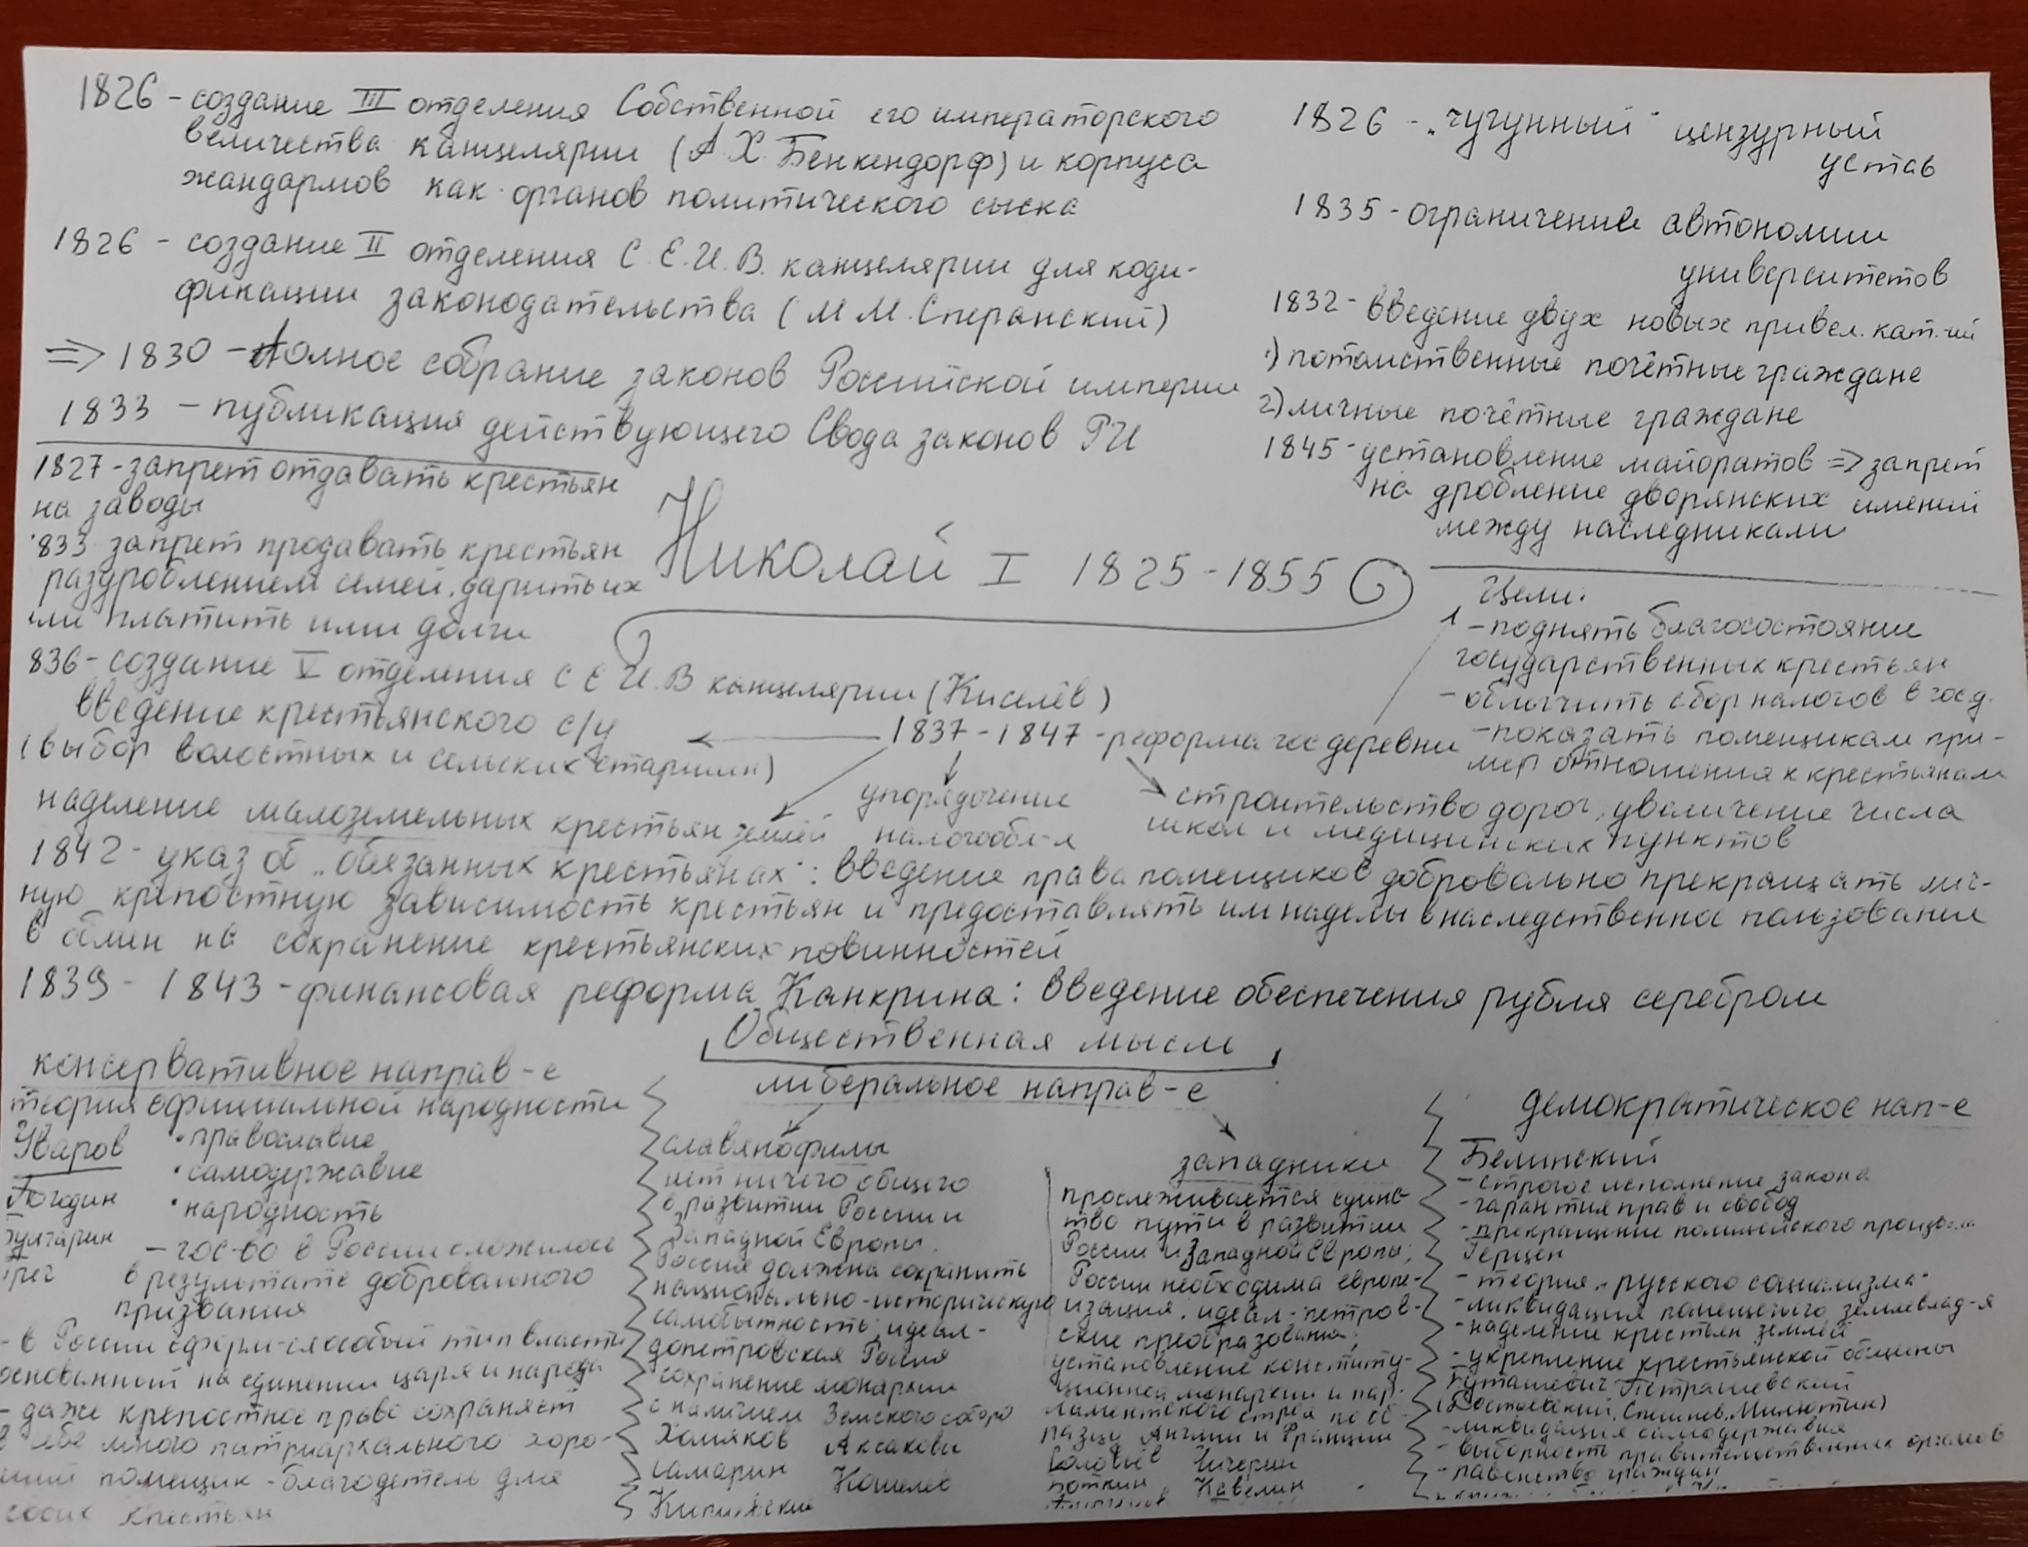 1826 - создание III отделения Собственной его императорского
величества канцелярии (А Х. Бенкендорф) и корпуса
жандармов как органов политического сыска
1826 - создание II отделения С. Е. И. В. канцелярии для коди-
фикации законодательства (М М. Сперанский)
=> 1830 - Полное собрание законов Российской империи
1833 - публикация действующего Свода законов РИ
1826 - „чугунный" цензурный
устав
1835 - ограничение автономии
университетов
1832 - введение двух новых привел. кат-ий
1) потомственные почётные граждане
2) личные почётные граждане
1845 - установление майоратов => запрет
на дробление дворянских имений
между наследниками
1827 - запрет отдавать крестьян
на заводы
833 запрет продавать крестьян
раздроблением семей, дарить их
или платить ими долги
Николай I 1825 - 1855
836 - создание V отделения С Е И. В канцелярии (Киселёв)
Цели:
- поднять благосостояние
государственных крестьян
- облегчить сбор налогов в госуд.
- показать помещикам при-
мер отношения к крестьянам
введение крестьянского с/у
(выбор волостных и сельских старшин)
1837 - 1847 - реформа гос деревни
наделение малоземельных крестьян землёй
упорядочение
налогообл-я
строительство дорог, увеличение числа
школ и медицинских пунктов
1842 - указ об „обязанных крестьянах": введение права помещиков добровольно прекращать лич-
ную крепостную зависимость крестьян и предоставлять им наделы в наследственное пользование
в обмен на сохранение крестьянских повинностей
1839 - 1843 - финансовая реформа Канкрина: введение обеспечения рубля серебром
Общественная мысль
консервативное направ-е
теория официальной народности
Уваров • православие
• самодержавие
Погодин • народность
Булгарин - гос-во в России сложилось
Греч в результате добровольного
призвания
- в России сформ-ся особый тип власти
основанный на единении царя и народа
- даже крепостное право сохраняет
в себе много патриархального хоро-
ший помещик - благодетель для
своих крестьян
либеральное направ-е
славянофилы
нет ничего общего
в развитии России и
Западной Европы.
Россия должна сохранить
национально-историческую
самобытность, идеал-
допетровская Россия
сохранение монархии
с наличием Земского собора
Хомяков Аксаковы
Самарин Кошелев
Киреевские
западники
прослеживается единс-
тво пути в развитии
России и Западной Европы;
России необходима европе-
изация, идеал - петров-
ские преобразования;
установление конститу-
ционной монархии и пар-
ламентского строя по об-
разцу Англии и Франции
Соловьёв Чичерин
Боткин Кавелин
демократическое нап-е
Белинский
- строгое исполнение закона
- гарантия прав и свобод
- прекращение полицейского произвола
Герцен
- теория „русского социализма"
- ликвидация помещичьего землевлад-я
- наделение крестьян землёй
- укрепление крестьянской общины
Буташевич-Петрашевский
(Достоевский, Спешнев, Милютин)
- ликвидация самодержавия
- выборность правительственных органов
- равенство граждан